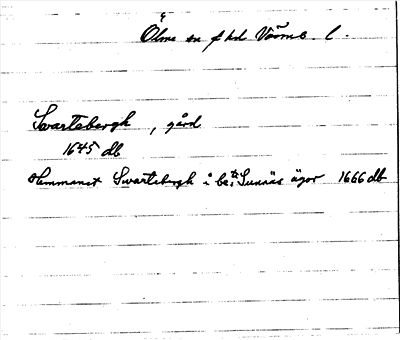 Ölme sn f hd Värml. l.
Svartebergh, gård
1645 db
Hemmanet Swartebergh i be:te Sunnäs ägor 1666 db